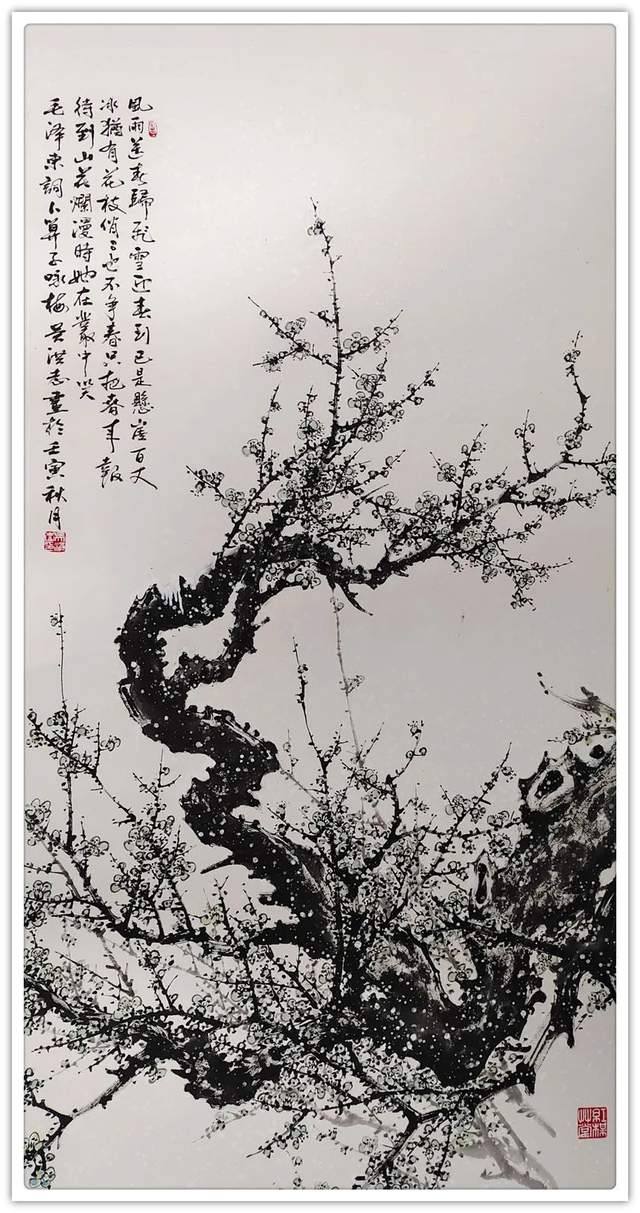 風雨送春歸飛雪迎春到已是懸崖百丈
冰猶有花枝俏〻也不争春只把春来報
待到山花爛漫時她在叢中笑
毛泽東詞卜算子咏梅吴洪志畫於壬寅秋月
紅楳
艸堂